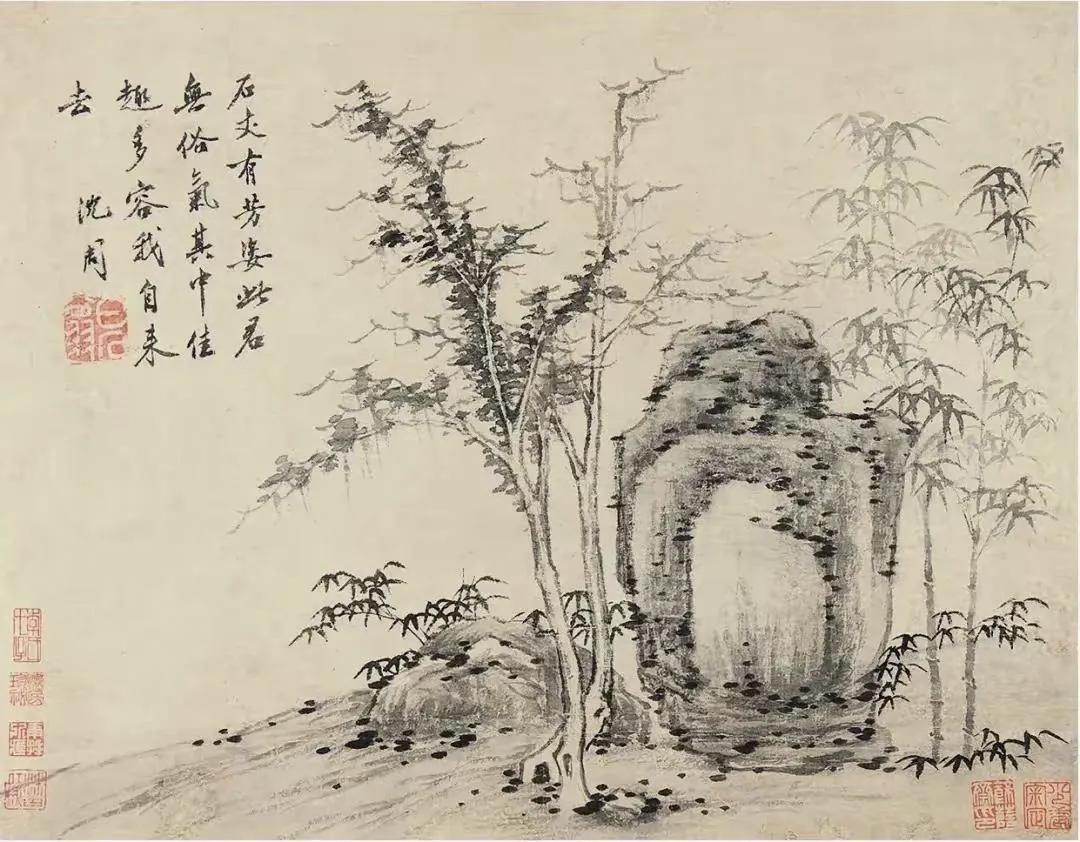 石丈有芳姿此君
無俗氣其中佳
趣多容我自来
去
沈周